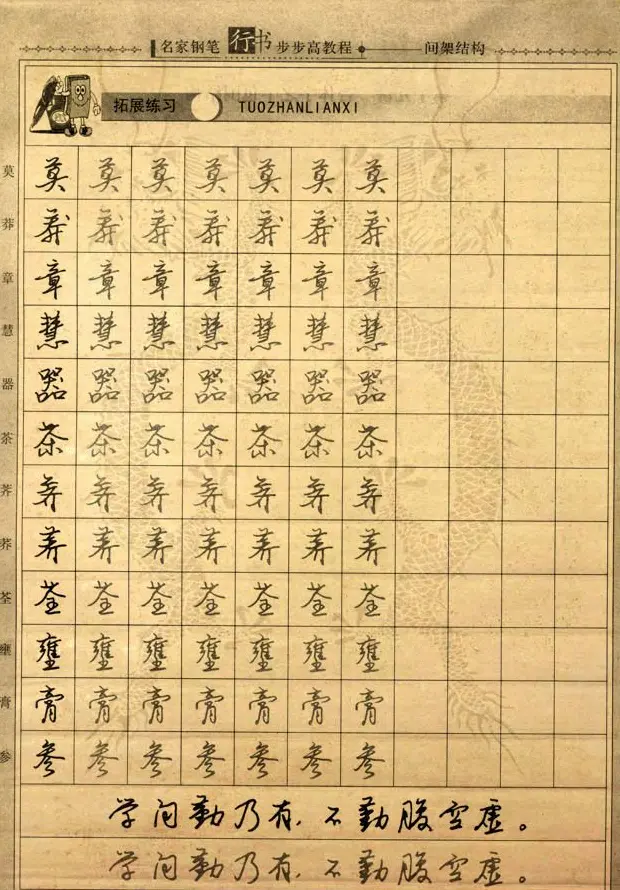 名家钢笔行书步步高教程 间架结构
拓展练习 TUOZHANLIANXI
莫 莫 莫 莫 莫 莫 莫 莫
莽 莽 莽 莽 莽 莽 莽 莽
章 章 章 章 章 章 章 章
慧 慧 慧 慧 慧 慧 慧 慧
器 器 器 器 器 器 器 器
茶 茶 茶 茶 茶 茶 茶 茶
荃 荃 荃 荃 荃 荃 荃 荃
壅 壅 壅 壅 壅 壅 壅 壅
膏 膏 膏 膏 膏 膏 膏 膏
参 参 参 参 参 参 参 参
学问勤乃有，不勤腹空虚。
学问勤乃有，不勤腹空虚。